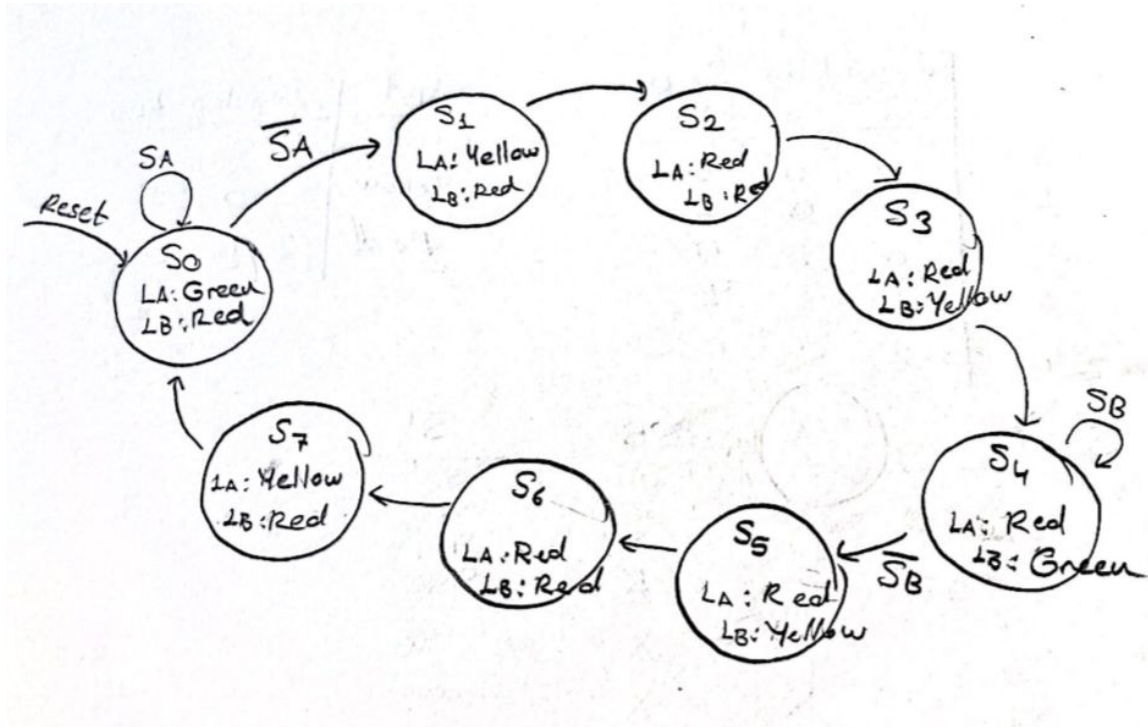 Reset
SA
S̅A̅
S0
LA: Green
LB: Red
S1
LA: Yellow
LB: Red
S2
LA: Red
LB: Red
S3
LA: Red
LB: Yellow
SB
S4
LA: Red
LB: Green
S̅B̅
S5
LA: Red
LB: Yellow
S6
LA: Red
LB: Red
S7
LA: Yellow
LB: Red